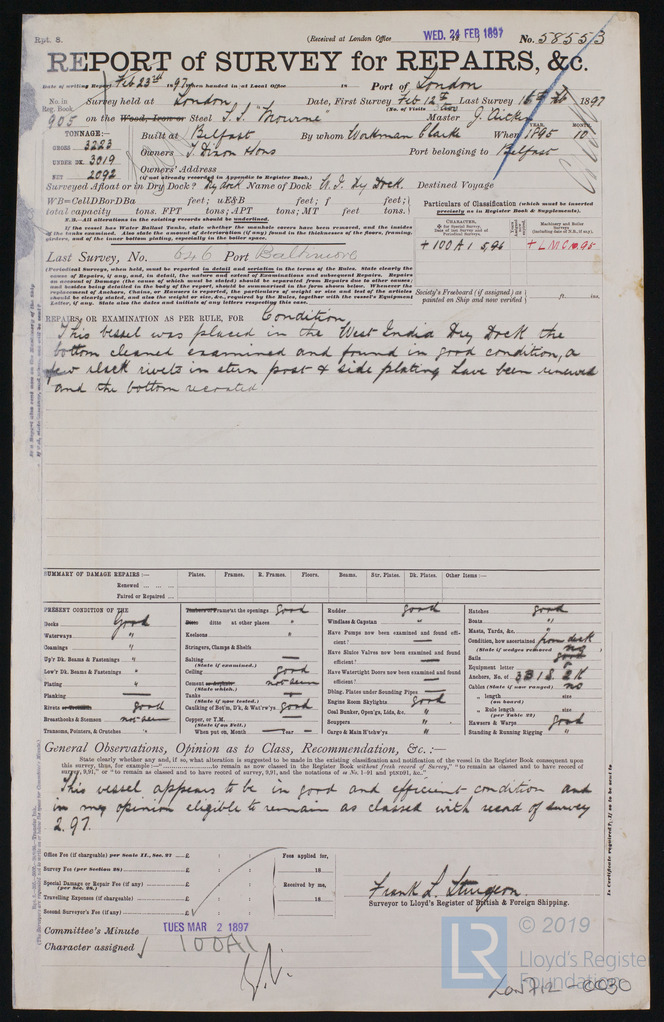 Rpt. 8.
(Received at London Office WED. 24 FEB 1897
No. 58553
REPORT of SURVEY for REPAIRS, &c.
Date of writing Report Feb 23rd 1897 when handed in at Local Office 18 Port of London
No. in Reg. Book 905
Survey held at London Date, First Survey Feb 12th Last Survey 1897
(No. of Visits
on the Wood, Iron or Steel S.S. "Mourne" Master J.
TONNAGE:—
GROSS 3223
UNDER DK. 3019
NET 2092
Built at Belfast By whom Workman Clark When YEAR. 1895 MONTH. 10
Owners T Dixon & Sons Port belonging to Belfast
Owners' Address
(if not already recorded in Appendix to Register Book.)
Surveyed Afloat or in Dry Dock? Dry dock Name of Dock W.I. Dry Dock. Destined Voyage
WB=CellDBorDBa feet; uE&B feet; f feet;
total capacity tons. FPT tons; APT tons; MT feet tons.
N.B.—All alterations in the existing records should be underlined.
If the vessel has Water Ballast Tanks, state whether the manhole covers have been removed, and the insides of the tanks examined. Also state the amount of deterioration (if any) found in the thicknesses of the floors, framing, girders, and of the inner bottom plating, especially in the boiler space.
Particulars of Classification (which must be inserted precisely as in Register Book & Supplements).
+ 100 A 1 5,96
+ LMC 10.95
Last Survey, No. 646 Port Baltimore
Society's Freeboard (if assigned) as painted on Ship and now verified ft. ins.
REPAIRS, OR EXAMINATION AS PER RULE, FOR Condition
This vessel was placed in the West India Dry Dock the
bottom cleaned examined and found in good condition, a
few slack rivets in stern post & side plating have been renewed
and the bottom recoated
SUMMARY OF DAMAGE REPAIRS:— Plates. Frames. R. Frames. Floors. Beams. Str. Plates. Dk. Plates. Other Items:—
Renewed ... ... ...
Faired or Repaired ...
PRESENT CONDITION OF THE
Decks Good
Waterways "
Coamings "
Up'r Dk. Beams & Fastenings "
Low'r Dk. Beams & Fastenings "
Plating "
Planking —
Rivets good
Breasthooks & Stemson not seen
Transoms, Pointers, & Crutches
Frame at the openings good
ditto at other places "
Keelsons "
Stringers, Clamps & Shelfs
Salting —
(State if examined.)
Ceiling Good
Cement not seen
(State which.)
Tanks —
(State if now tested.)
Caulking of Bot'm, D'k, & Wat'rw'ys good
Copper, or T.M. —
(State if on Felt.)
When put on, Month Year
Rudder good
Windlass & Capstan "
Have Pumps now been examined and found efficient? —
Have Sluice Valves now been examined and found efficient? —
Have Watertight Doors now been examined and found efficient? —
Dblng. Plates under Sounding Pipes —
Engine Room Skylights Good
Coal Bunker, Open'gs, Lids, &c. "
Scuppers "
Cargo & Main H'tchw'ys "
Hatches good
Boats "
Masts, Yards, &c. "
Condition, how ascertained from deck
(State if wedges removed) no
Sails good
Equipment letter
Anchors, No. of 3B 1S 2K
Cables (State if now ranged) no
" length size
(on board)
" Rule length size
(per Table 22)
Hawsers & Warps Good
Standing & Running Rigging "
General Observations, Opinion as to Class, Recommendation, &c.:—
State clearly whether any, if so, what alteration is suggested to be made in the existing classification and notification of the vessel in the Register Book consequent upon
This vessel appears to be in good and efficient condition and
in my opinion eligible to remain as classed with record of survey
2.97.
Office Fee (if chargeable) per Scale II., Sec. 27 £ : : Fees applied for,
Survey Fee (per Section 28) £ : : 18
Special Damage or Repair Fee (if any) £ : : Received by me,
(per Sec. 28.)
Travelling Expenses (if chargeable) £ : : 18
Second Surveyor's Fee (if any) £ : :
Frank L. Sturgeon
Surveyor to Lloyd's Register of British & Foreign Shipping.
Committee's Minute TUES MAR 2 1897
Character assigned 100A1
© 2019
LR Lloyd's Register Foundation
LON712-0030